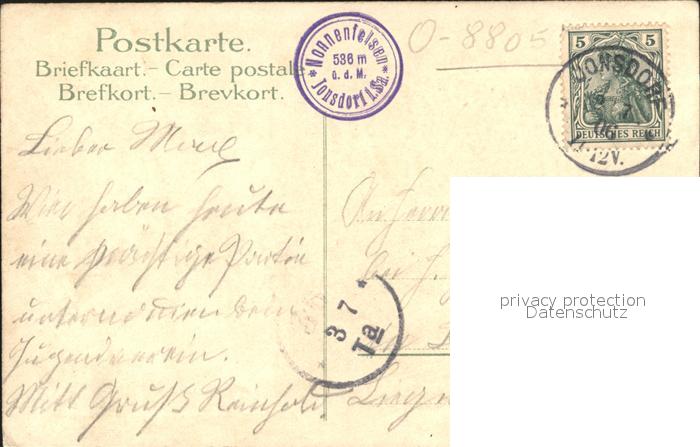 Postkarte.
Briefkaart.- Carte postale
Brefkort.- Brevkort.
*Nonnenfelsen*
536 m
ü. d. M.
Jonsdorf i. Sa.
O-8805
5 5
DEUTSCHES REICH
JONSDORF
7
11-12V.
Lieber
Wir haben heute
eine prächtige Partie
unternommen beim
Jugendverein.
Mitt Gruß Reinhold
An Herrn
bei H.
3 7
7a
privacy protection
Datenschutz